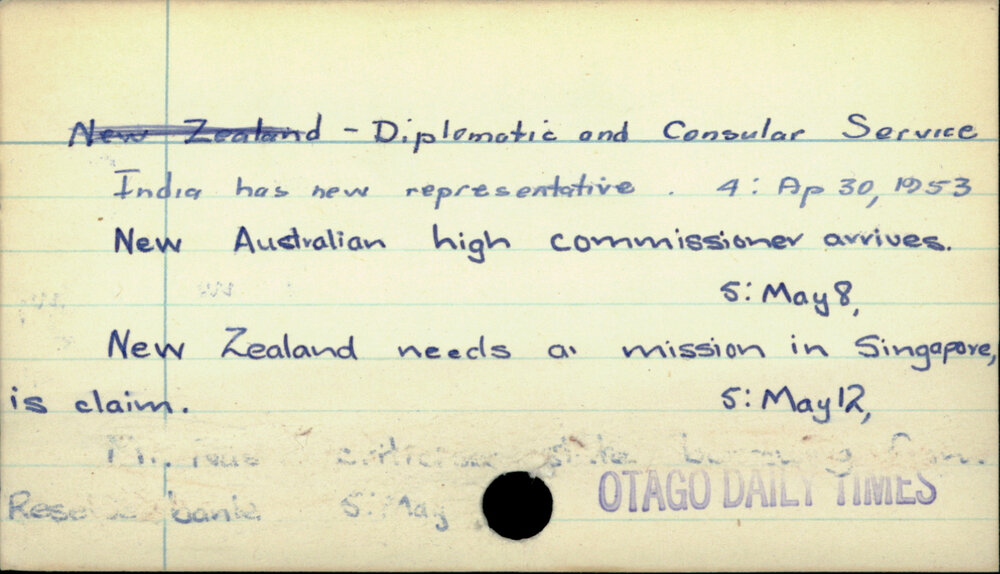 New Zealand - Diplomatic and Consular Service
India has new representative. 4: Ap 30, 1953
New Australian high commissioner arrives.
5: May 8,
New Zealand needs a mission in Singapore,
is claim.
5: May 12,
bank 5: May
OTAGO DAILY TIMES